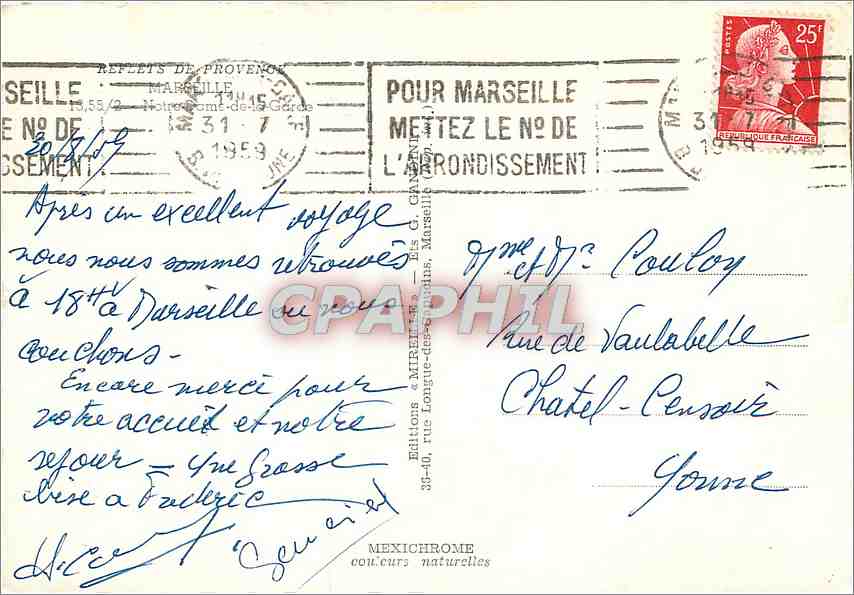 REFLETS DE PROVENCE
MARSEILLE
13.55/2 - Notre-Dame-de-la-Garde
SEILLE
E Nº DE
SSEMENT
31 7
1959
POUR MARSEILLE
METTEZ LE Nº DE
L'ARRONDISSEMENT
31 7
1959
POSTES
25F
REPUBLIQUE FRANCAISE
Après un excellent voyage
nous nous sommes retrouvés
à 18H à Marseille ou nous
couchons -
Encore merci pour
votre accueil et notre
sejour - Une grosse
bise a Frederic
Editions « MIREILLE » — Ets G. GANDINI
38-40, rue Longue-des-Capucins, Marseille
Mme et Mr Coulon
Rue de Vaulabelle
Chatel-Censoir
Yonne
MEXICHROME
couleurs naturelles
CPAPHIL